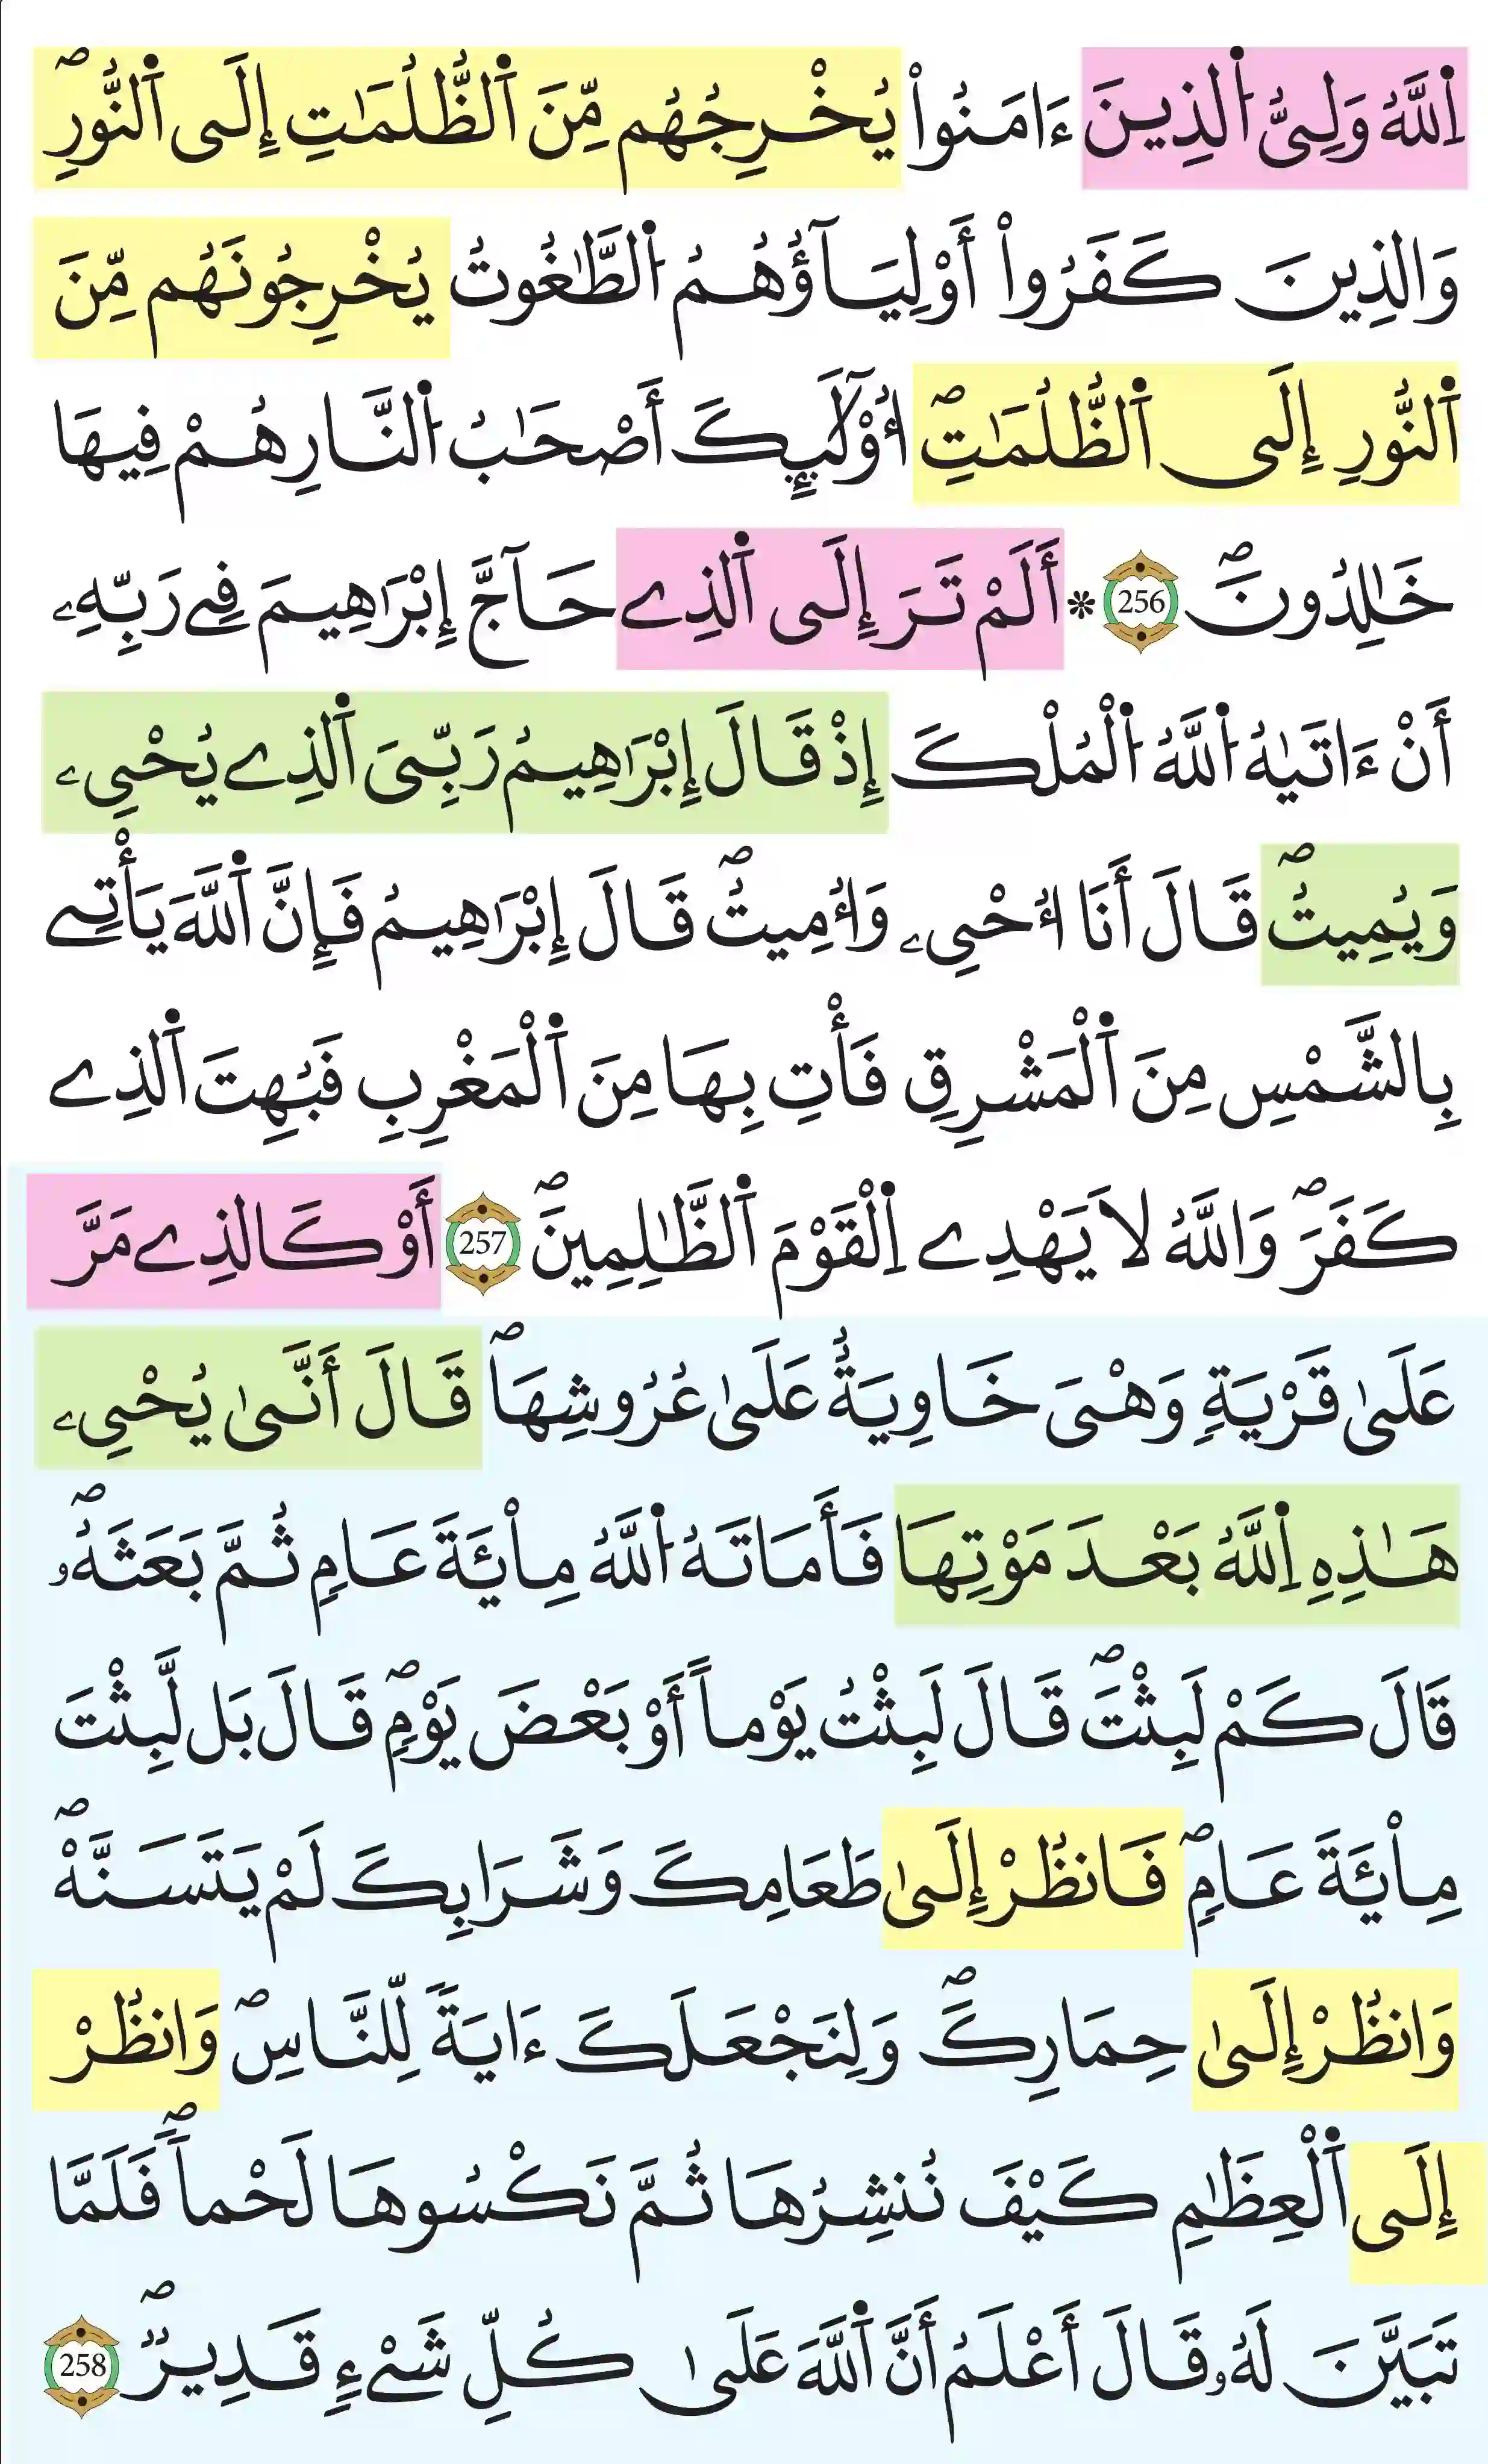 اِ۬للَّهُ وَلِىُّ اُ۬لذِينَ ءَامَنُواْ يُخْرِجُهُم مِّنَ اَ۬لظُّلُمَٰتِ إِلَى اَ۬لنُّورِۖ
وَالذِينَ كَفَرُواْ أَوْلِيَآؤُهُمُ اُ۬لطَّٰغُوتُ يُخْرِجُونَهُم مِّنَ
اَ۬لنُّورِ إِلَى اَ۬لظُّلُمَٰتِۖ أُوْلَٰٓئِكَ أَصْحَٰبُ اُ۬لنَّارِ هُمْ فِيهَا
خَٰلِدُونَۖ 256 * أَلَمْ تَرَ إِلَى اَ۬لذِے حَآجَّ إِبْرَٰهِيمَ فِے رَبِّهِۦ
أَنْ ءَاتَيٰهُ اُ۬للَّهُ اُ۬لْمُلْكَ إِذْ قَالَ إِبْرَٰهِيمُ رَبِّىَ اَ۬لذِے يُحْيِۦ
وَيُمِيتُۖ قَالَ أَنَا أُحْيِۦ وَأُمِيتُۖ قَالَ إِبْرَٰهِيمُ فَإِنَّ اَ۬للَّهَ يَأْتِے
بِالشَّمْسِ مِنَ اَ۬لْمَشْرِقِ فَأْتِ بِهَا مِنَ اَ۬لْمَغْرِبِ فَبُهِتَ اَ۬لذِے
كَفَرَۖ وَاللَّهُ لَا يَهْدِے اِ۬لْقَوْمَ اَ۬لظَّٰلِمِينَۖ 257 أَوْ كَالذِے مَرَّ
عَلَىٰ قَرْيَةٍ وَهْىَ خَاوِيَةٌ عَلَىٰ عُرُوشِهَاۖ قَالَ أَنَّىٰ يُحْيِۦ
هَٰذِهِ اِ۬للَّهُ بَعْدَ مَوْتِهَا فَأَمَاتَهُ اُ۬للَّهُ مِاْئَةَ عَامٍ ثُمَّ بَعَثَهُۥۖ
قَالَ كَمْ لَبِثْتَۖ قَالَ لَبِثْتُ يَوْماً أَوْ بَعْضَ يَوْمٍۖ قَالَ بَل لَّبِثْتَ
مِاْئَةَ عَامٍۖ فَانظُرْ إِلَىٰ طَعَامِكَ وَشَرَابِكَ لَمْ يَتَسَنَّهْۖ
وَانظُرْ إِلَىٰ حِمَارِكَۖ وَلِنَجْعَلَكَ ءَايَةً لِّلنَّاسِۖ وَانظُرْ
إِلَى اَ۬لْعِظَٰمِ كَيْفَ نُنشِرُهَا ثُمَّ نَكْسُوهَا لَحْماًۖ فَلَمَّا
تَبَيَّنَ لَهُۥ قَالَ أَعْلَمُ أَنَّ اَ۬للَّهَ عَلَىٰ كُلِّ شَےْءٍ قَدِيرٌۖ 258